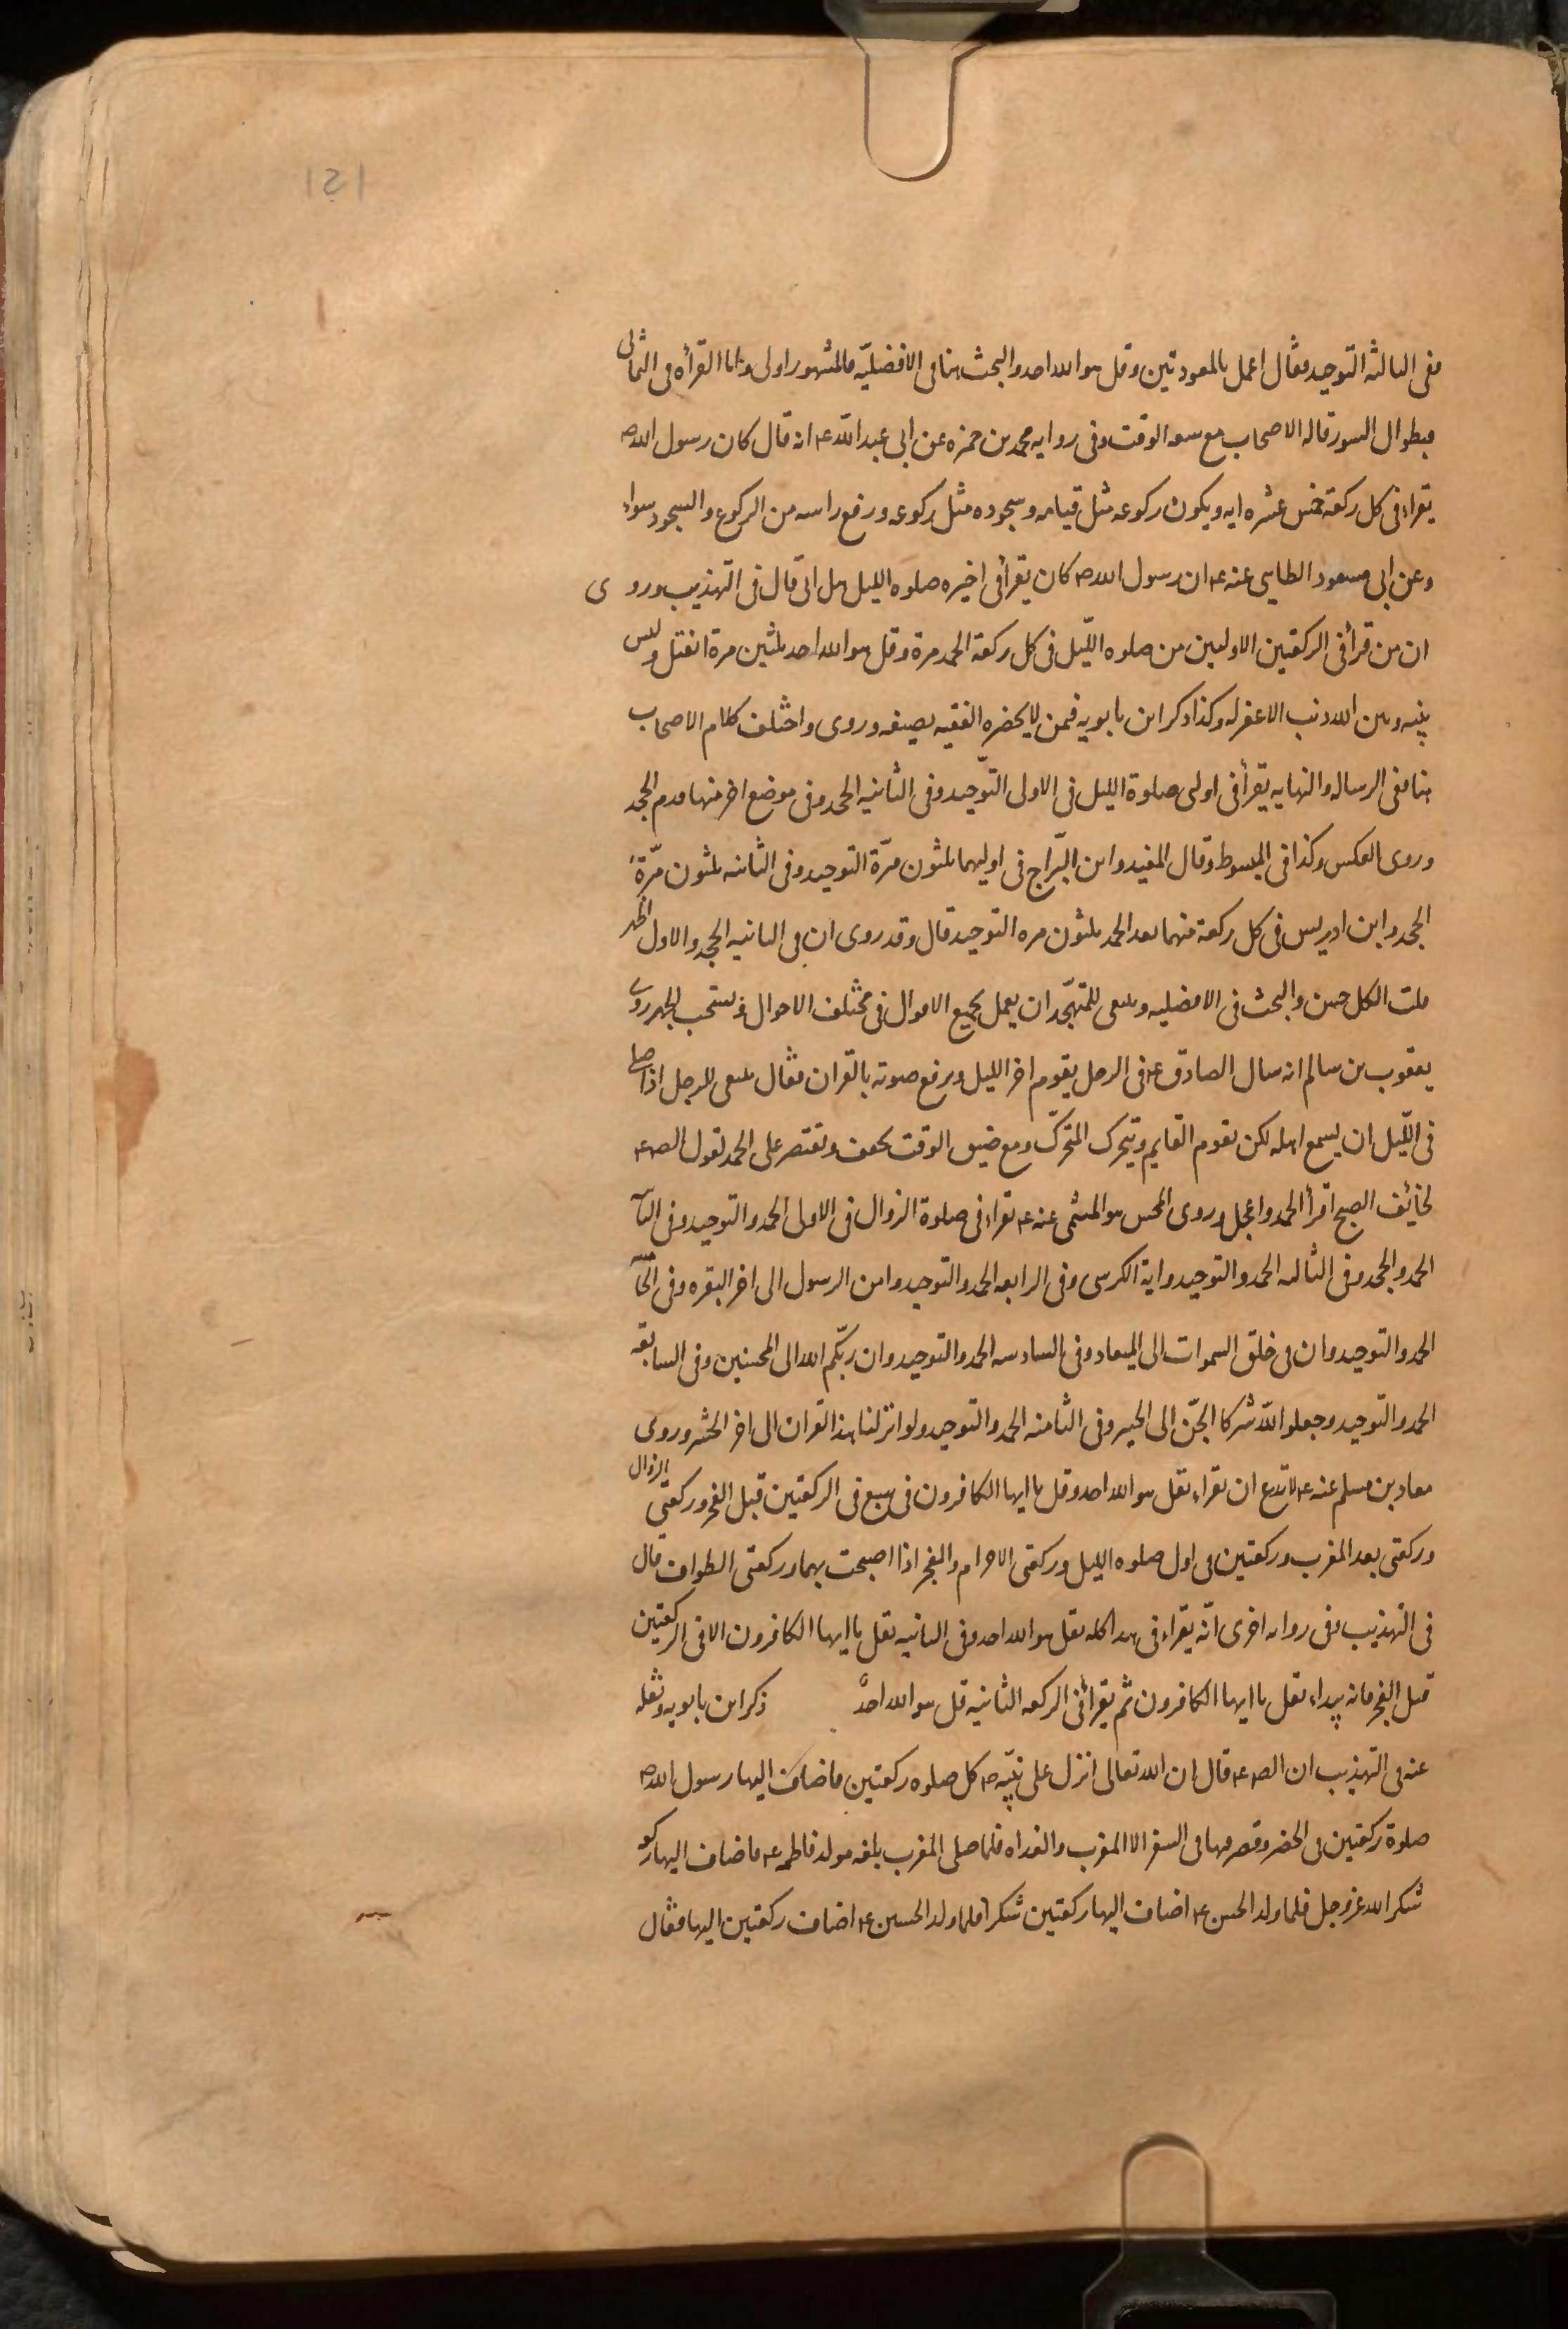 ففى الثالثه التوحيد فقال اعمل بالمعوذتين وقل هو الله احد والبحث هنا فى الافضليّة فالمشهور اولى واما القرأه فى الثمانى
فبطوال السور قاله الاصحاب مع سعه الوقت وفى روايه محمد بن حمزه عن ابى عبد الله ع انه قال كان رسول الله ص
يقراء فى كل ركعة خمس عشره ايه ويكون ركوعه مثل قيامه وسجوده مثل ركوعه ورفع راسه من الركوع والسجود سواء
وعن ابى مسعود الطايى عنه ع ان رسول الله ص كان يقرأ فى اخيره صلوه الليل هل اتى قال فى التهذيب وروى
ان من قرأ فى الركعتين الاوليين من صلوه اللّيل فى كل ركعة الحمد مرة وقل هو الله احد ثلثين مرة انفتل وليس
بينه وبين الله ذنب الا غفر له وكذا ذكر ابن بابويه فمن لا يحضره الفقيه بصيغه وروى واختلف كلام الاصحاب
هنا ففى الرساله والنهايه يقرأ فى اولى صلوة الليل فى الاولى التوّحيد وفى الثانيه الجحد وفى موضع اخر منها قدم الجحد
وروى العكس وكذا فى المبسوط وقال المفيد وابن البّراج فى اوليهما ثلثون مرّة التوحيد وفى الثانيه ثلثون مرّة
الجحد وابن ادريس فى كل ركعة منهما بعد الحمد ثلثون مره التوحيد قال وقد روى ان فى الثانيه الجحد والاول اظهر
قلت الكل حسن والبحث فى الافضليه وينبغى للمتهجّد ان يعمل بجميع الاقوال فى مختلف الاحوال ويستحب الجهر روى
يعقوب بن سالم انه سال الصادق ع فى الرجل يقوم اخر الليل ويرفع صوته بالقران فقال ينبغى للرجل اذا صلى
فى اللّيل ان يسمع اهله لكن يقوم القايم ويتحرك المتحرّك ومع ضيق الوقت يخفف ويقتصر على الحمد لقول الص ع
لخائف الصبح اقرأ الحمد واعجل وروى المحسن هو الميثمى عنه ع تقراء فى صلوة الزوال فى الاولى الحمد والتوحيد وفى الثا
الحمد والجحد وفى الثالثه الحمد والتوحيد واية الكرسى وفى الرابعه الحمد والتوحيد وامن الرسول الى اخر البقره وفى الخا
الحمد والتوحيد وان فى خلق السموات الى الميعاد وفى السادسه الحمد والتوحيد وان ربّكم الله الى المحسنين وفى السابعه
الحمد والتوحيد وجعلوا للّه شركا الجّن الى الخبير وفى الثامنه الحمد والتوحيد ولو انزلنا هذا القران الى اخر الحشر وروى
معاذ بن مسلم عنه ع لا تدع ان تقراء بقل هو الله احد وقل يا ايها الكافرون فى سبع فى الركعتين قبل الفجر وركعتى الزوال
وركعتى بعد المغرب وركعتين فى اول صلوه الليل وركعتى الاحرام والفجر اذا اصبحت بهما وركعتى الطواف قال
فى التهذيب وفى روايه اخرى انّه يقراء فى هذا كله بقل هو الله احد وفى الثانيه بقل يا ايها الكافرون الا فى الركعتين
قبل الفجر فانه يبداء بقل يا ايها الكافرون ثم يقرأ فى الركعه الثانيه قل هو الله احدٌ ذكر ابن بابويه ونقله
عنه فى التهذيب ان الص ع قال ان الله تعالى انزل على نبيّه ص كل صلوه ركعتين فاضاف اليها رسول الله ص
صلوة ركعتين فى الحضر وقصر فيها فى السفر الا المغرب والغداه فلما صلى المغرب بلغه مولد فاطمه ع فاضاف اليها ركعه
شكرا لله عز وجل فلما ولد الحسن ع اضاف اليها ركعتين شكرا فلما ولد الحسين ع اضاف ركعتين اليها فقال